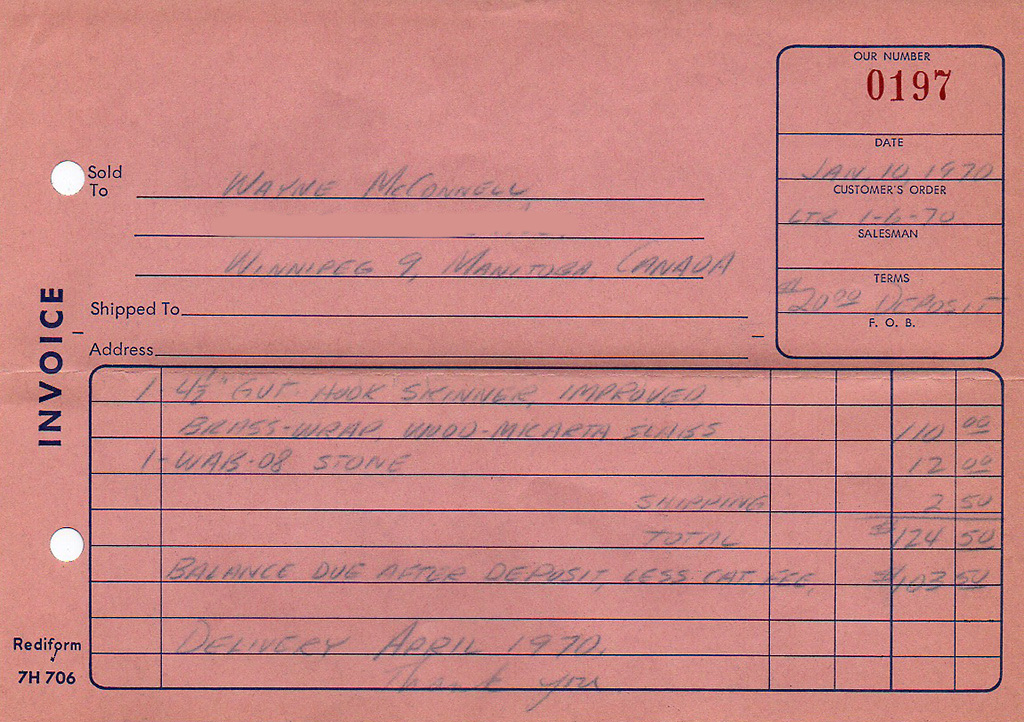 OUR NUMBER
0197
DATE
JAN. 10 1970
CUSTOMER'S ORDER
LTR 1-6-70
SALESMAN
TERMS
$20.00 DEPOSIT
F. O. B.
Sold To WAYNE McCONNELL,
WINNIPEG 9, MANITOBA, CANADA
Shipped To
Address
INVOICE
1 4½" GUT-HOOK SKINNER, IMPROVED,
BRASS-WRAP, WOOD-MICARTA SLABS 110 00
1- WAB-08 STONE 12 00
SHIPPING 2 50
TOTAL $124 50
BALANCE DUE AFTER DEPOSIT, LESS CAT FEE, $103 50
DELIVERY APRIL 1970.
Thank you.
Rediform
7H 706